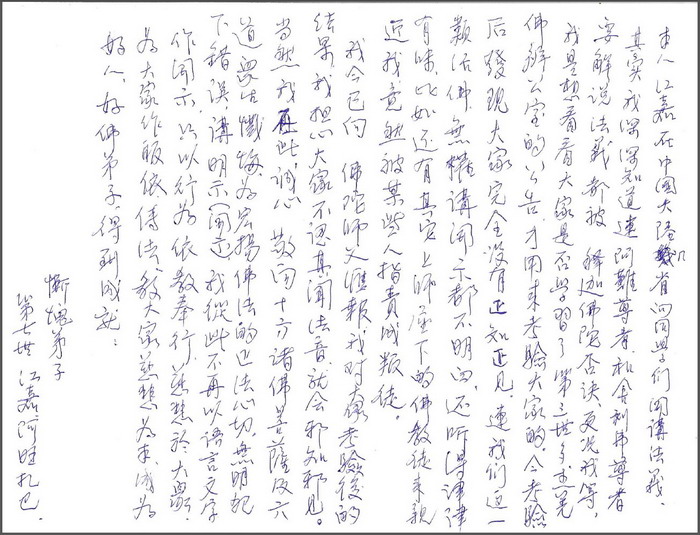 本人江嘉在中国大陆几省向同学们开讲法義，
其实我深深知道連阿難尊者和舍利弗尊者
要解说法義都被释迦佛陀否决，更况我等，
我是想看看大家是否学習了第三世多杰羌
佛辦公室的公告，才用来考驗大家的。今考驗
后發現大家完全没有正知正見，連我们这一
類活佛無權講開示都不明白，还听得津津
有味，比如还有真宝上師座下的佛教徒来親
近我，竟然被某些人指責成叛徒。
我今已向佛陀師父匯報我对大家考驗後的
结果，我担心大家不認真闻法音就会邪知邪見。
当然我在此，誠心敬向十方諸佛菩薩及六
道眾生懺悔，為宏揚佛法的正法心切，無明犯
下錯误，講明示(開示)，我從此不再以语言文字
作開示，只以行為依教奉行，慈悲於大眾，
為大家作皈依、傳法，教大家慈悲為本，成为
好人、好佛弟子，得到成就！
慚愧弟子
第七世 江嘉阿旺扎巴